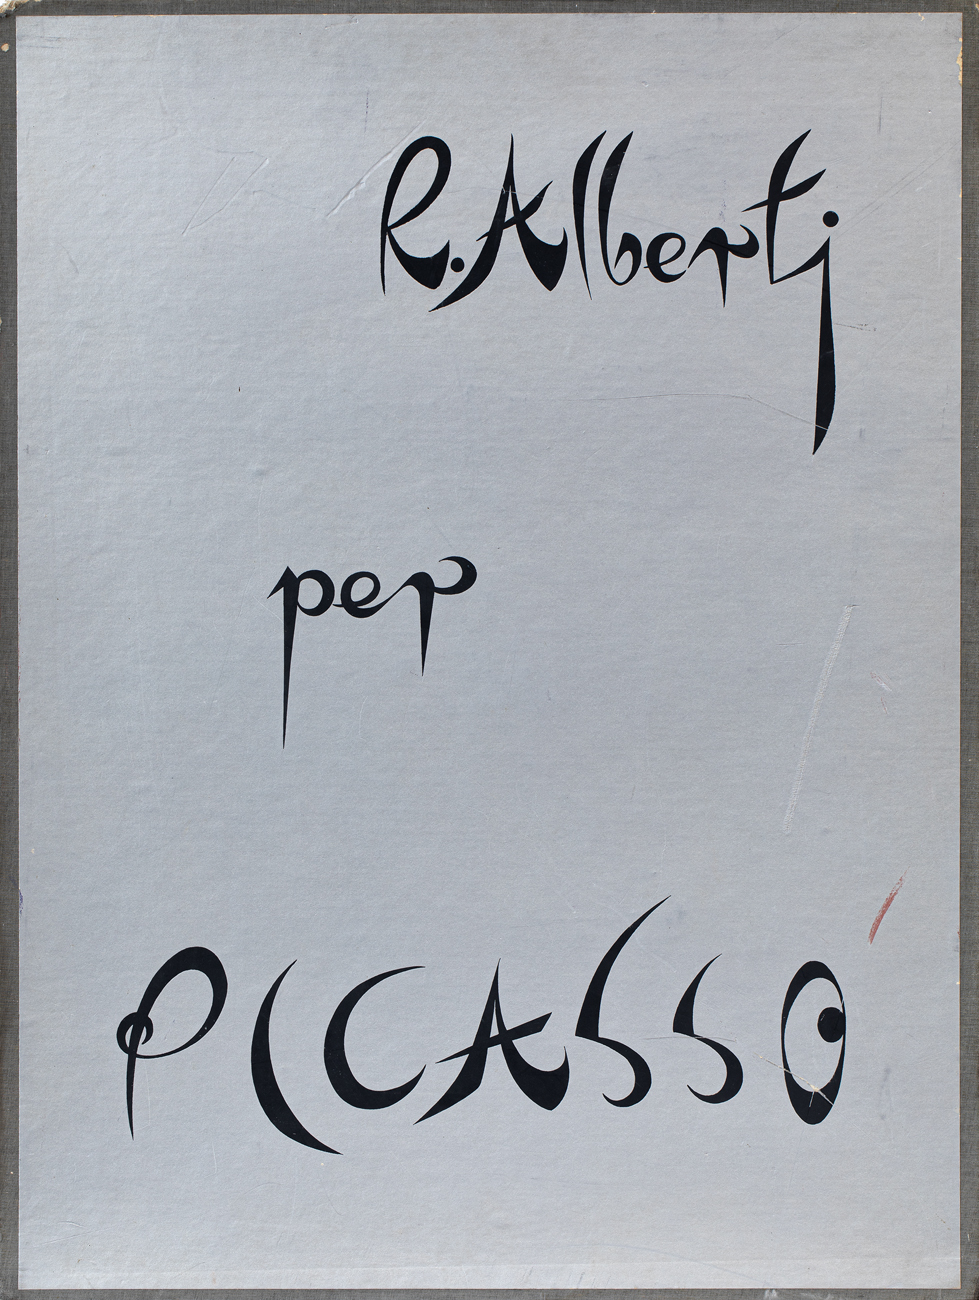 R. Alberti
per
PICASSO